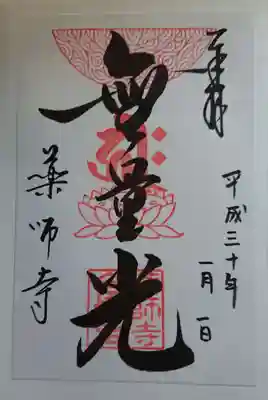 奉拝
平成三十年
一月一日
無量光
薬師寺